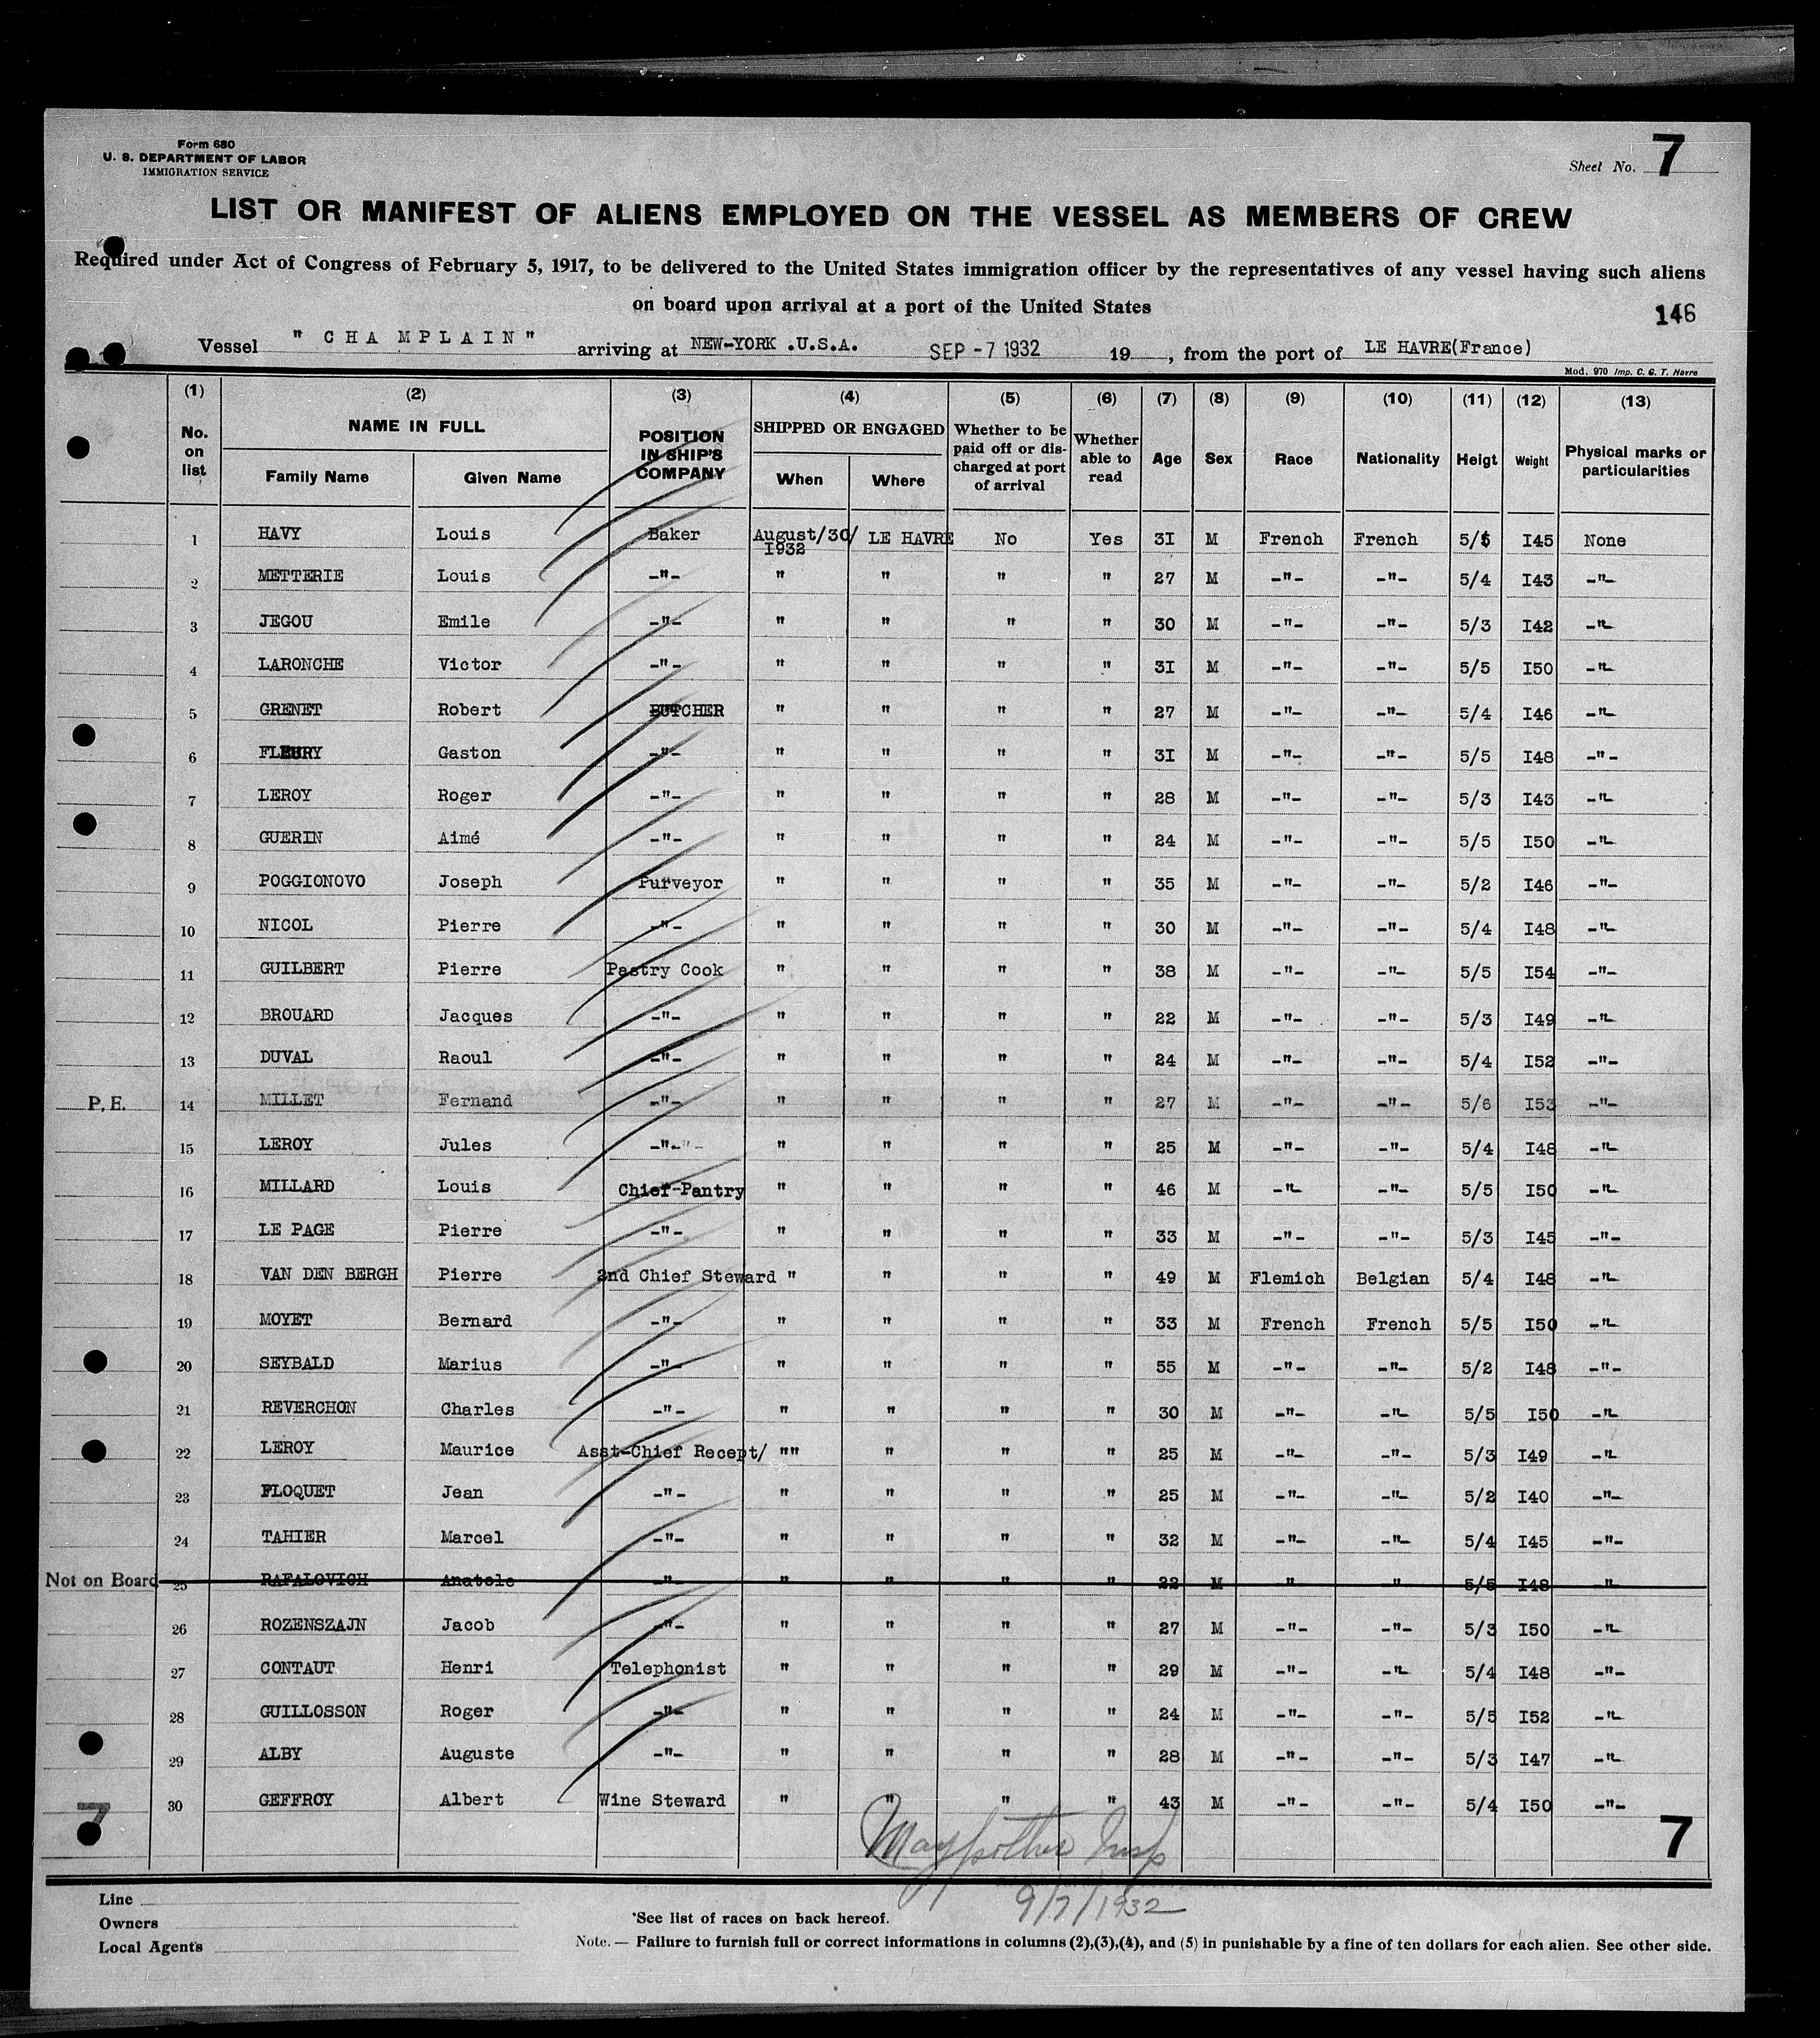 Form 680
U. S. DEPARTMENT OF LABOR
IMMIGRATION SERVICE
Sheet No. 7
LIST OR MANIFEST OF ALIENS EMPLOYED ON THE VESSEL AS MEMBERS OF CREW
Required under Act of Congress of February 5, 1917, to be delivered to the United States immigration officer by the representatives of any vessel having such aliens
on board upon arrival at a port of the United States
146
Vessel " CHAMPLAIN " arriving at NEW-YORK .U.S.A. SEP - 7 1932 19 , from the port of LE HAVRE(France)
Mod. 970 Imp. C. G. T. Havre
(1) (2) (3) (4) (5) (6) (7) (8) (9) (10) (11) (12) (13)
No. on list NAME IN FULL Family Name Given Name POSITION IN SHIP'S COMPANY SHIPPED OR ENGAGED When Where Whether to be paid off or discharged at port of arrival Whether able to read Age Sex Race Nationality Heigt Weight Physical marks or particularities
1 HAVY Louis Baker August/30/ I932 LE HAVRE No Yes 3I M French French 5/ I45 None
2 METTERIE Louis -"- " " " " 27 M -"- -"- 5/4 I43 -"-
3 JEGOU Emile -"- " " " " 30 M -"- -"- 5/3 I42 -"-
4 LARONCHE Victor -"- " " " " 3I M -"- -"- 5/5 I50 -"-
5 GRENET Robert BUTCHER " " " " 27 M -"- -"- 5/4 I46 -"-
6 FLEURY Gaston -"- " " " " 3I M -"- -"- 5/5 I48 -"-
7 LEROY Roger -"- " " " " 28 M -"- -"- 5/3 I43 -"-
8 GUERIN Aimé -"- " " " " 24 M -"- -"- 5/5 I50 -"-
9 POGGIONOVO Joseph Purveyor " " " " 35 M -"- -"- 5/2 I46 -"-
10 NICOL Pierre -"- " " " " 30 M -"- -"- 5/4 I48 -"-
11 GUILBERT Pierre Pastry Cook " " " " 38 M -"- -"- 5/5 I54 -"-
12 BROUARD Jacques -"- " " " " 22 M -"- -"- 5/3 I49 -"-
13 DUVAL Raoul -"- " " " " 24 M -"- -"- 5/4 I52 -"-
P. E. 14 MILLET Fernand -"- " " " " 27 M -"- -"- 5/6 I53 -"-
15 LEROY Jules -"-"- " " " " 25 M -"- -"- 5/4 I48 -"-
16 MILLARD Louis Chief-Pantry " " " " 46 M -"- -"- 5/5 I50 -"-
17 LE PAGE Pierre -"- " " " " 33 M -"- -"- 5/3 I45 -"-
18 VAN DEN BERGH Pierre 2nd Chief Steward " " " " 49 M Flemich Belgian 5/4 I48 -"-
19 MOYET Bernard -"- " " " " 33 M French French 5/5 I50 -"-
20 SEYBALD Marius -"- " " " " 55 M -"- -"- 5/2 I48 -"-
21 REVERCHON Charles -"- " " " " 30 M -"- -"- 5/5 I50 -"-
22 LEROY Maurice Asst-Chief Recept/ "" " " " 25 M -"- -"- 5/3 I49 -"-
23 FLOQUET Jean -"- " " " " 25 M -"- -"- 5/2 I40 -"-
24 TAHIER Marcel -"- " " " " 32 M -"- -"- 5/4 I45 -"-
Not on Board 25 RAFALOVICH Anatole -"- " " " " 22 M " " 5/5 I48 "
26 ROZENSZAJN Jacob -"- " " " " 27 M -"- -"- 5/3 I50 -"-
27 CONTAUT Henri Telephonist " " " " 29 M -"- -"- 5/4 I48 -"-
28 GUILLOSSON Roger -"- " " " " 24 M -"- -"- 5/5 I52 -"-
29 ALBY Auguste -"- " " " " 28 M -"- -"- 5/3 I47 -"-
30 GEFFROY Albert Wine Steward " " " " 43 M -"- -"- 5/4 I50 -"-
7 7
Insp
9/7/1932
Line
Owners
Local Agents
*See list of races on back hereof.
Note. — Failure to furnish full or correct informations in columns (2),(3),(4), and (5) in punishable by a fine of ten dollars for each alien. See other side.